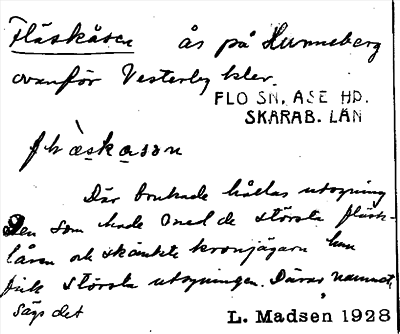 Fläskåsen ås på Hunneberg
ovanför Vesterby klev.
FLO SN, ÅSE HD.
SKARAB. LÄN
Där brukade hållas utsyning
Den som hade de största fläsk-
låren och skänkte kronjägarn han
fick största utsyningen. Därav namnet,
sägs det
L. Madsen 1928